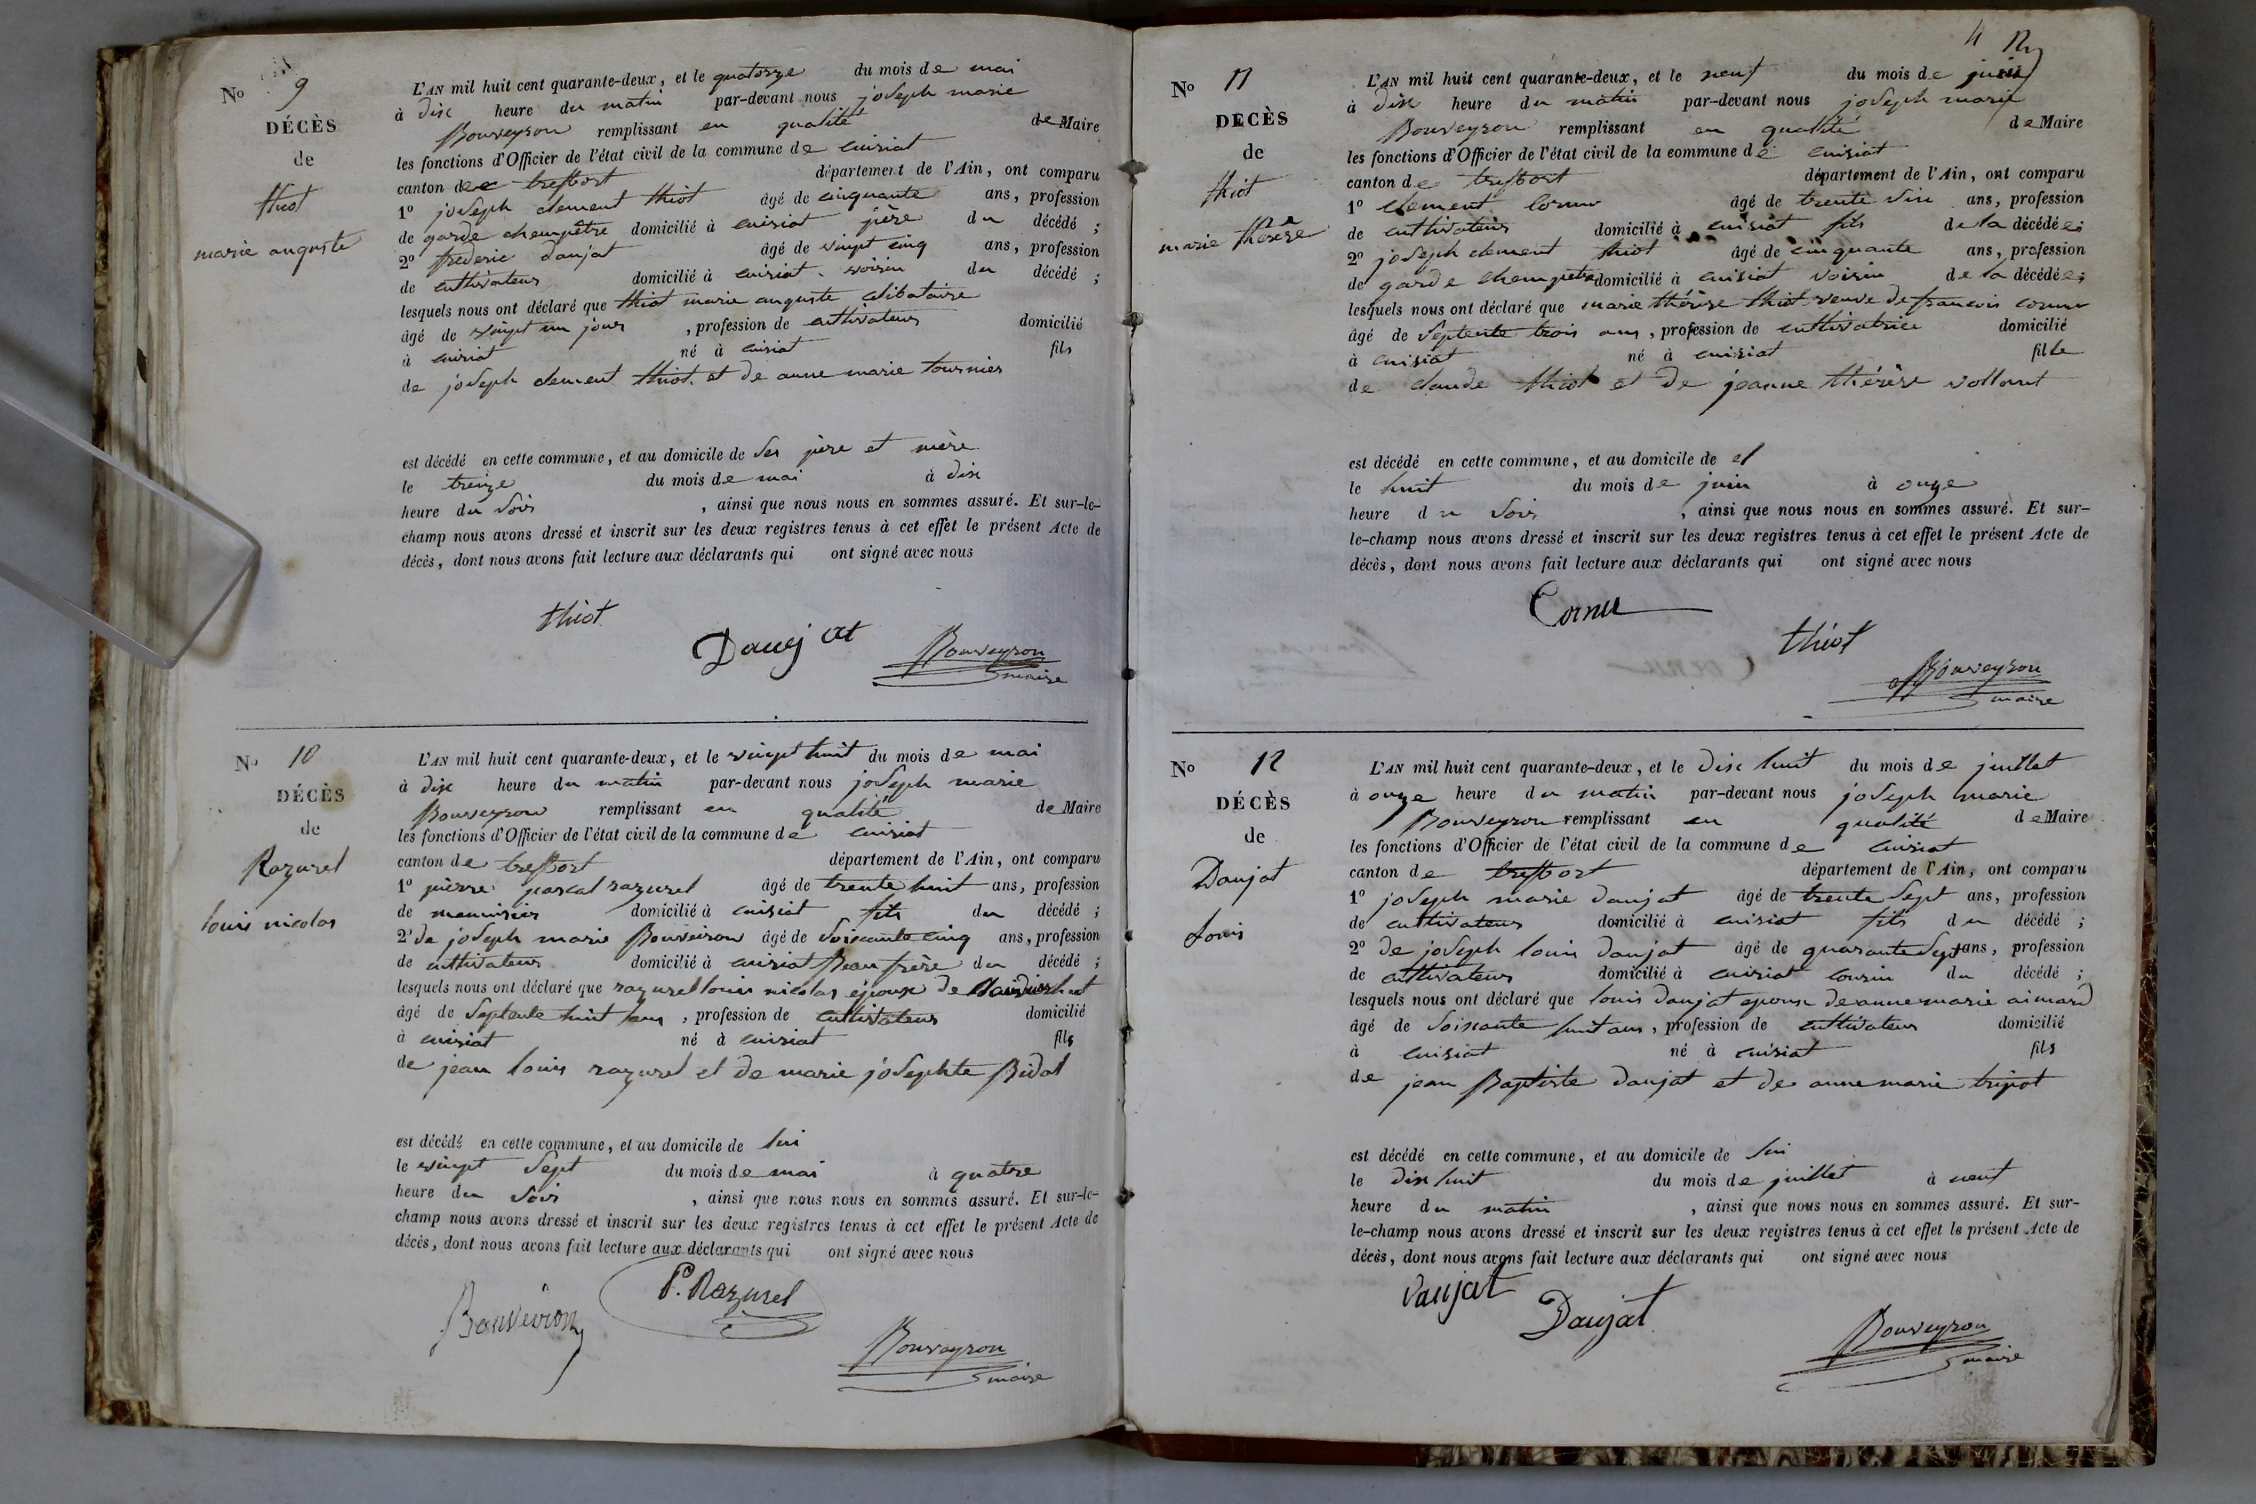 No 9
DÉCÈS
de
thiot
marie auguste
L'AN mil huit cent quarante-deux, et le quatorze du mois de mai
à dix heure du matin par-devant nous joseph marie
Bouveyron remplissant en qualité de Maire
les fonctions d'Officier de l'état civil de la commune de cuisiat
canton de treffort département de l'Ain, ont comparu
1o joseph clement thiot âgé de cinquante ans, profession
de garde champêtre domicilié à cuisiat père du décédé ;
2o frederic daujat âgé de vingt cinq ans, profession
de cultivateur domicilié à cuisiat voisin du décédé ;
lesquels nous ont déclaré que thiot marie auguste célibataire
âgé de vingt un jours , profession de cultivateur domicilié
à cuisiat né à cuisiat fils
de joseph clement thiot et de anne marie tournier
est décédé en cette commune, et au domicile de ses père et mère
le treize du mois de mai à dix
heure du soir , ainsi que nous nous en sommes assuré. Et sur-le-
champ nous avons dressé et inscrit sur les deux registres tenus à cet effet le présent Acte de
décès, dont nous avons fait lecture aux déclarants qui ont signé avec nous
thiot
Daujat
Bouveyron
maire
No 10
DÉCÈS
de
Razurel
louis nicolas
L'AN mil huit cent quarante-deux, et le vingt huit du mois de mai
à dix heure du matin par-devant nous joseph marie
Bouveyron remplissant en qualité de Maire
les fonctions d'Officier de l'état civil de la commune de cuisiat
canton de treffort département de l'Ain, ont comparu
1o pierre pascal razurel âgé de trente huit ans, profession
de menuisier domicilié à cuisiat fils du décédé ;
2o de joseph marie Bouveiron âgé de soixante cinq ans, profession
de cultivateur domicilié à cuisiat Beau frère du décédé ;
lesquels nous ont déclaré que razurel louis nicolas époux de
âgé de septente huit ans , profession de cultivateur domicilié
à cuisiat né à cuisiat fils
de jean louis razurel et de marie josephte Bidal
est décédé en cette commune, et au domicile de lui
le vingt sept du mois de mai à quatre
heure du soir , ainsi que nous nous en sommes assuré. Et sur-le-
champ nous avons dressé et inscrit sur les deux registres tenus à cet effet le présent Acte de
décès, dont nous avons fait lecture aux déclarants qui ont signé avec nous
Bouveiron
P. Razurel
Bouveyron
maire
4
No 11
DÉCÈS
de
thiot
marie thérèse
L'AN mil huit cent quarante-deux, et le neuf du mois de juin
à dix heure du matin par-devant nous joseph marie
Bouveyron remplissant en qualité de Maire
les fonctions d'Officier de l'état civil de la commune de cuisiat
canton de treffort département de l'Ain, ont comparu
1o clement cornu âgé de trente six ans, profession
de cultivateur domicilié à cuisiat fils de la décédée ;
2o joseph clement thiot âgé de cinquante ans, profession
de garde champêtre domicilié à cuisiat voisin de la décédée ;
lesquels nous ont déclaré que marie thérèse thiot veuve de francois cornu
âgé de septente trois ans , profession de cultivatrice domicilié
à cuisiat né à cuisiat fille
de claude thiot et de jeanne thérèse vollant
est décédé en cette commune, et au domicile de el
le huit du mois de juin à onze
heure du soir , ainsi que nous nous en sommes assuré. Et sur-
le-champ nous avons dressé et inscrit sur les deux registres tenus à cet effet le présent Acte de
décès, dont nous avons fait lecture aux déclarants qui ont signé avec nous
Cornu
thiot
Bouveyron
maire
No 12
DÉCÈS
de
Daujat
Louis
L'AN mil huit cent quarante-deux, et le dix huit du mois de juillet
à onze heure du matin par-devant nous joseph marie
Bouveyron remplissant en qualité de Maire
les fonctions d'Officier de l'état civil de la commune de cuisiat
canton de treffort département de l'Ain, ont comparu
1o joseph marie daujat âgé de trente sept ans, profession
de cultivateur domicilié à cuisiat fils du décédé ;
2o de joseph louis daujat âgé de quarante sept ans, profession
de cultivateur domicilié à cuisiat cousin du décédé ;
lesquels nous ont déclaré que louis daujat epoux de anne marie aimard
âgé de soixante huit ans , profession de cultivateur domicilié
à cuisiat né à cuisiat fils
de jean Baptiste daujat et de anne marie tripot
est décédé en cette commune, et au domicile de lui
le dix huit du mois de juillet à neuf
heure du matin , ainsi que nous nous en sommes assuré. Et sur-
le-champ nous avons dressé et inscrit sur les deux registres tenus à cet effet le présent Acte de
décès, dont nous avons fait lecture aux déclarants qui ont signé avec nous
Daujat
Daujat
Bouveyron
maire